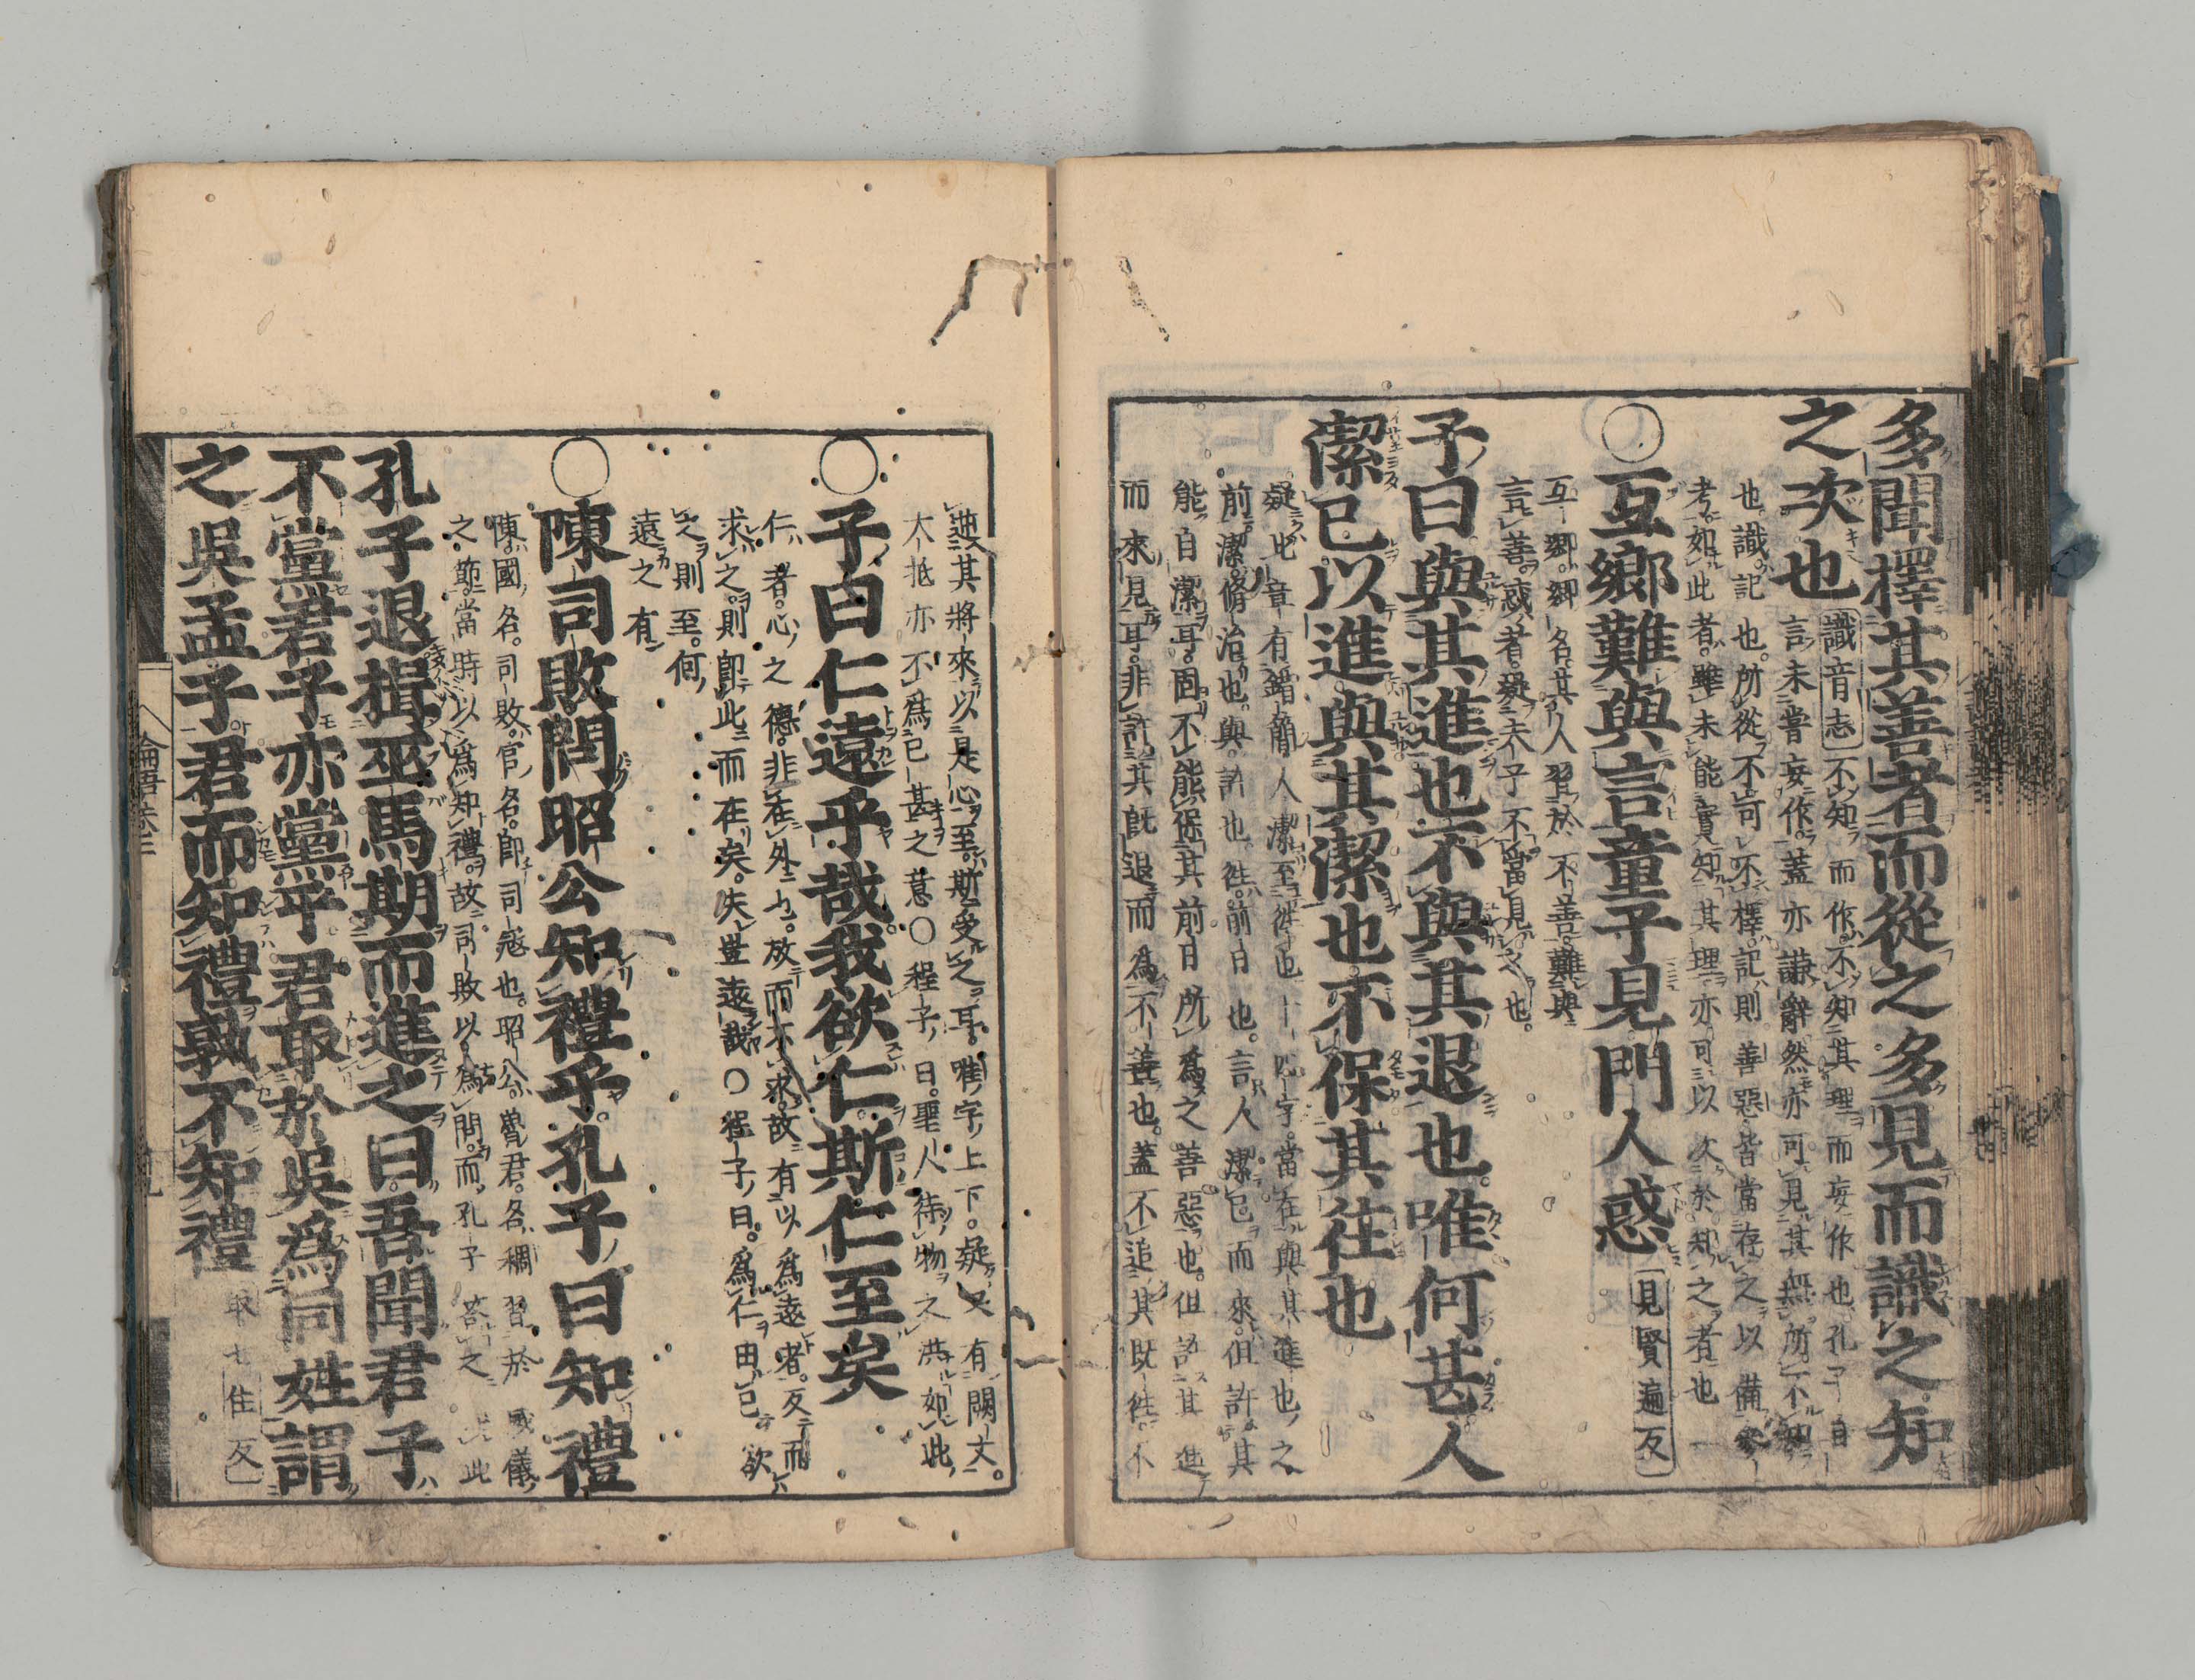 多聞擇其善者而從之多見而識之知
之次也
識音志 不知而作不知其理而妄作也孔子自
言未嘗妄作蓋亦謙辭然亦可見其無所不知
也識記也所從不可不擇記則善惡皆當存之以備參
考如此者雖未能實知其理亦可以次於知之者也
○互鄉難與言童子見門人惑
見賢遍反
互鄉鄉名其人習於不善難與
言善惑者疑夫子不當見之也
子曰與其進也不與其退也唯何甚人
潔已以進與其潔也不保其往也
疑此章有錯簡人潔至往也十四字當在與其進也之
前潔脩治也與許也往前日也言人潔已而來但許其
能自潔耳固不能保其前日所爲之善惡也但許其進
而來見耳非許其既退而爲不善也蓋不追其既往不
逆其將來以是心至斯受之耳唯字上下疑又有闕文
大抵亦不爲已甚之意○程子曰聖人待物之洪如此
○子曰仁遠乎哉我欲仁斯仁至矣
仁者心之德非在外也放而不求故有以爲遠者反而
求之則卽此而在矣夫豈遠哉○程子曰爲仁由已欲
之則至何
遠之有
○陳司敗問昭公知禮乎孔子曰知禮
陳國名司敗官名卽司寇也昭公魯君名稠習於威儀
之節當時以爲知禮故司敗以爲問而孔子答之如此
孔子退揖巫馬期而進之曰吾聞君子
不黨君子亦黨乎君取於吳爲同姓謂
之吳孟子君而知禮孰不知禮
取七住反
論語卷二